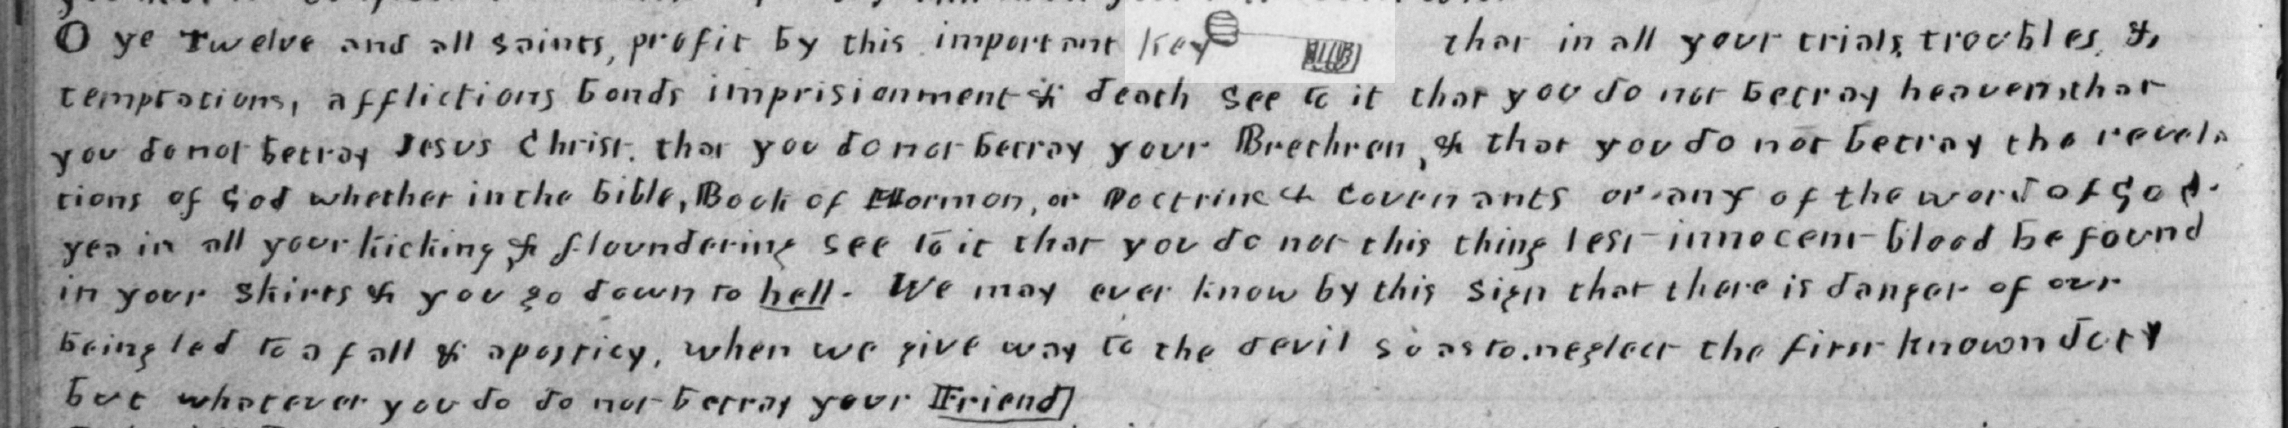 O ye Twelve and all saints, profit by this important Key that in all your trials, troubles, &
temptations, afflictions bonds imprisionment & death see to it that you do not betray heaven, that
you do not betray Jesus Christ. that you do not betray your Brethren, & that you do not betray the revela
tions of God whether in the bible, Book of Mormon, or Doctrine & Covenants or any of the word of God.
yea in all your kicking & floundering see to it that you do not this thing lest innocent blood be found
in your skirts & you go down to hell. We may ever know by this sign that there is danger of our
being led to a fall & aposticy, when we give way to the devil so as to neglect the first known duty
but whatever you do do not betray your Friend